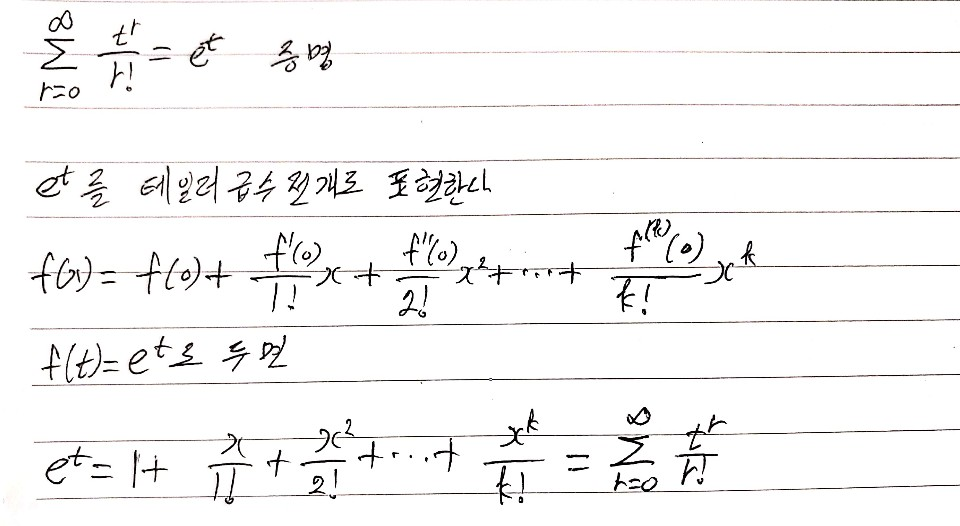 ∞
∑ t^r/r! = e^t 증명
r=0
e^t를 테일러 급수 전개로 표현한다
f(x) = f(0) + f'(0)/1! x + f''(0)/2! x² + ⋯ + f^(k)(0)/k! x^k
f(t) = e^t로 두면
e^t = 1 + x/1! + x²/2! + ⋯ + x^k/k! = ∑_{r=0}^{∞} t^r/r!